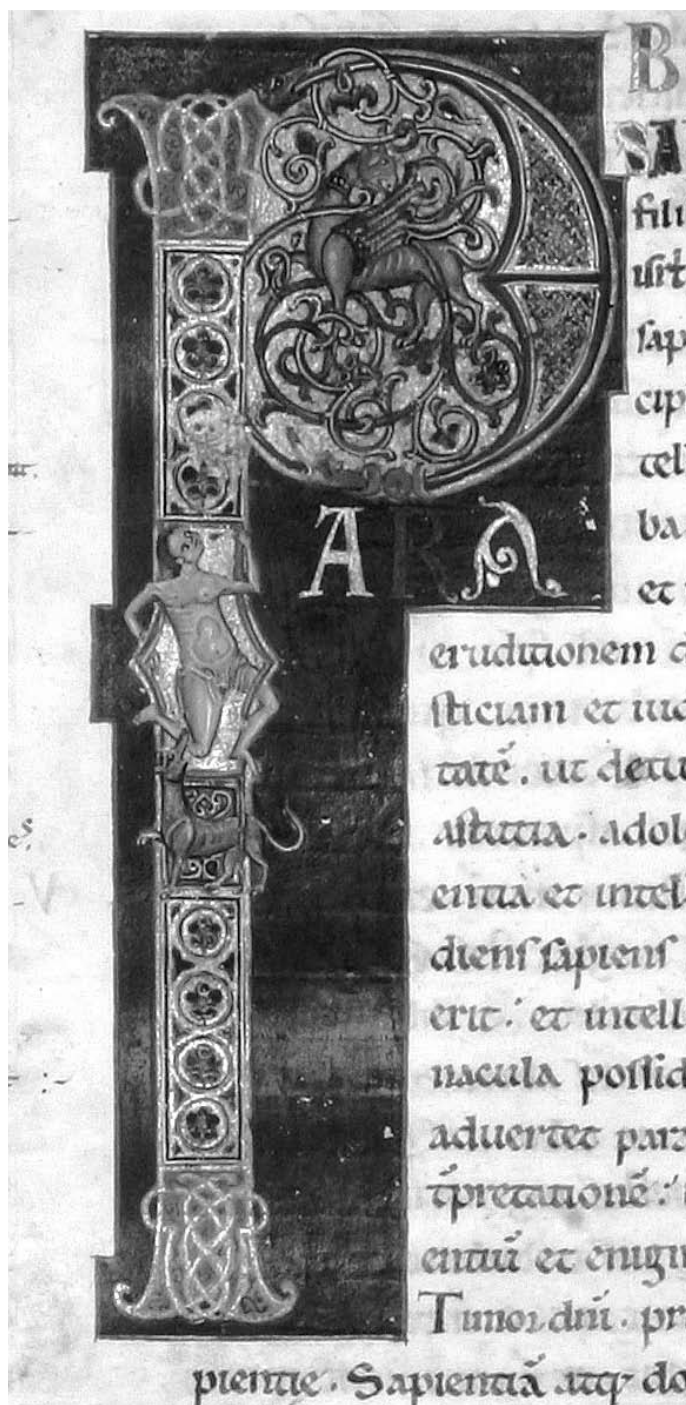 P
B
SA
fili
ARA
et
eruditionem d
sticiam et iud
tatē. ut detu
astutia. adol
entia et intel
diens sapiens
erit: et intell
nacula possid
aduertet par
t̄pretationē:
entiū et enigm
Timor dn̄i. pr
pientie. Sapientiā atq; do